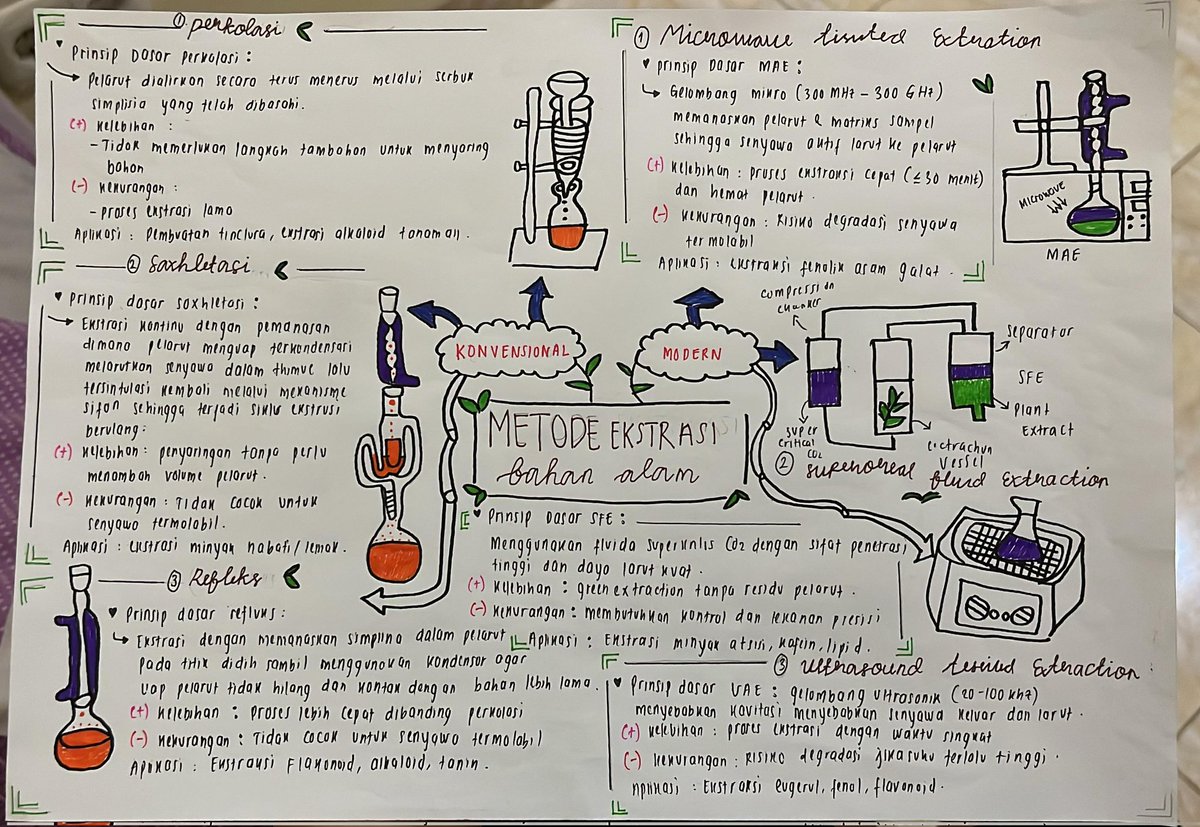 ① perkolasi
Prinsip Dasar perkolasi :
Pelarut dialirkan secara terus menerus melalui serbuk
simplisia yang telah dibasahi.
(+) Kelebihan :
- Tidak memerlukan langkah tambahan untuk menyaring
bahan
(-) Kekurangan :
- proses ekstrasi lama
Aplikasi : Pembuatan tinctura, ekstrasi alkaloid tanaman.
② Soxhletasi
Prinsip dasar soxhletasi :
Ekstrasi kontinu dengan pemanasan
dimana pelarut menguap terkondensasi
melarutkan senyawa dalam lalu
kembali melalui mekanisme
sifon sehingga terjadi
berulang.
(+) Kelebihan : penyaringan tanpa perlu
menambah volume pelarut.
(-) Kekurangan : Tidak cocok untuk
senyawa termolabil.
Aplikasi : Ekstrasi minyak nabati/lemak.
③ Refleks
Prinsip dasar refluks :
Ekstrasi dengan memanaskan dalam pelarut
pada titik didih sambil menggunakan kondensor agar
uap pelarut tidak hilang dan kontak dengan bahan lebih lama.
(+) Kelebihan : Proses lebih cepat dibanding perkolasi
(-) Kekurangan : Tidak cocok untuk senyawa termolabil
Aplikasi : Ekstraksi Flavonoid, alkaloid, tanin.
KONVENSIONAL
MODERN
METODE EKSTRASI
bahan alam
① Microwave Extration
Prinsip Dasar MAE :
Gelombang mikro (300 MHz - 300 GHz)
memanaskan pelarut & matriks sampel
sehingga senyawa aktif larut ke pelarut
(+) Kelebihan : proses ekstraksi cepat (≤30 menit)
dan hemat pelarut.
(-) Kekurangan : Risiko degradasi senyawa
termolabil
Aplikasi : Ekstraksi fenolik asam galat.
MICROWAVE
MAE
compression
Separator
SFE
Plant
Extract
super
critical
CO2
vessel
② fluid Extraction
Prinsip Dasar SFE :
Menggunakan fluida superkritis CO2 dengan sifat penetrasi
tinggi dan daya larut kuat.
(+) Kelebihan : green extraction tanpa residu pelarut.
(-) Kekurangan : membutuhkan kontrol dan tekanan presisi
Aplikasi : Ekstrasi minyak atsiri, kafein, lipid.
③ Ultrasound Extraction
Prinsip dasar UAE : gelombang ultrasonik (20-100 kHz)
menyebabkan kavitasi menyebabkan senyawa keluar dan larut.
(+) Kelebihan : proses ekstrasi dengan waktu singkat
(-) Kekurangan : Risiko degradasi jika suhu terlalu tinggi.
Aplikasi : Ekstraksi eugerul, fenol, flavonoid.